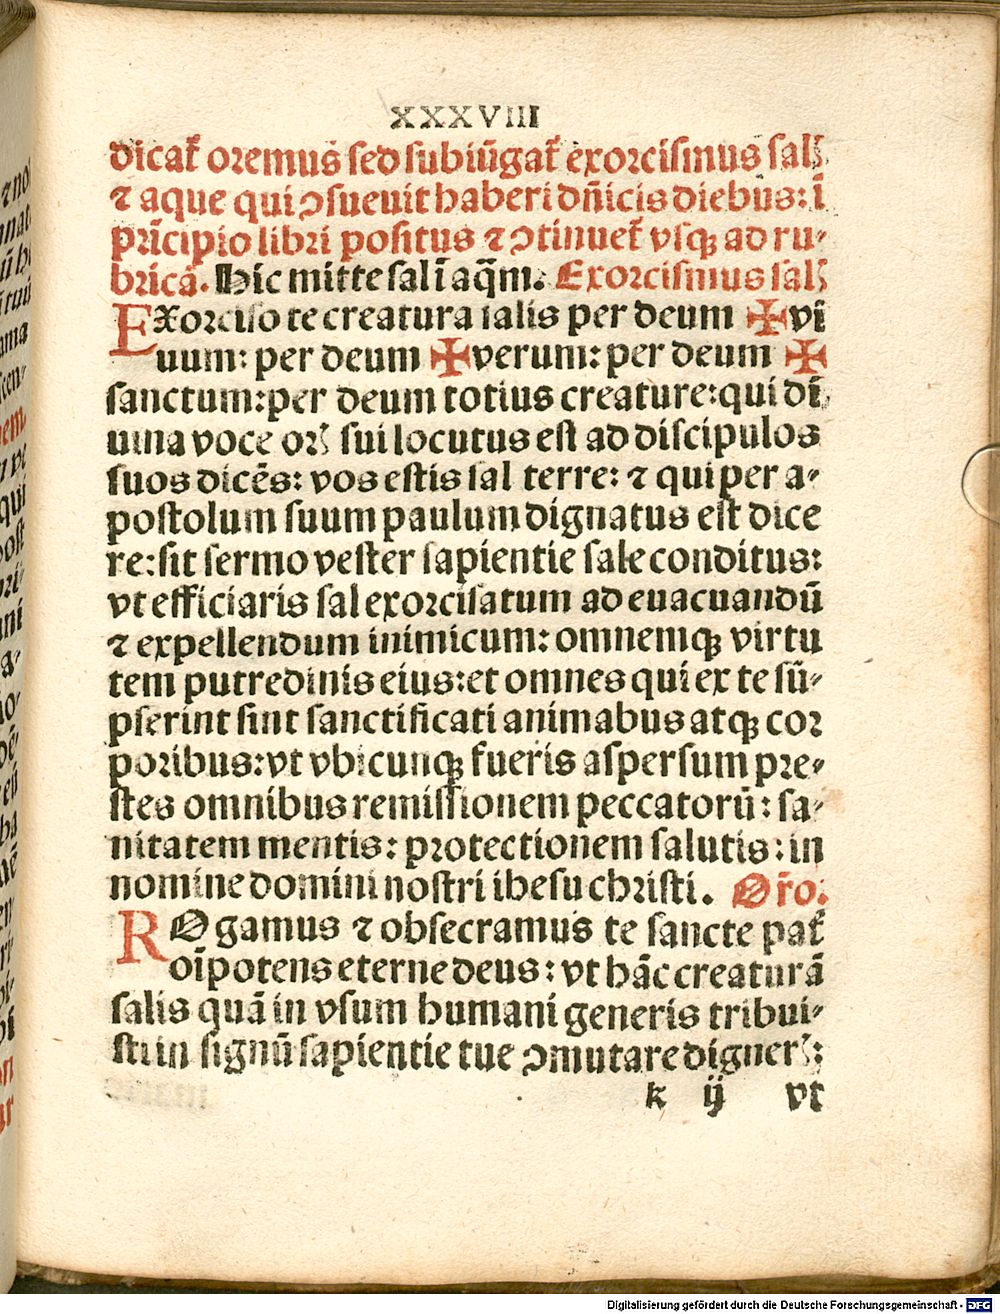 XXXVIII
dicat᷒ oremus sed subiūgat᷒ exorcismus salꝭ
⁊ aque qui ↄsueuit haberi dn̄icis diebus: ī
prīcipio libri positus ⁊ ↄtinuet᷒ vsqꝫ ad ru-
bricā. Hic mitte sal ī aq̄m. Exorcismus salꝭ
EXorciso te creatura salis per deum ✠ vī
uum: per deum ✠ verum: per deum ✠
sanctum: per deum totius creature: qui di
uina voce orꝭ sui locutus est ad discipulos
suos dicēs: vos estis sal terre: ⁊ qui per a-
postolum suum paulum dignatus est dice
re: sit sermo vester sapientie sale conditus:
vt efficiaris sal exorcisatum ad euacuandū
⁊ expellendum inimicum: omnemqꝫ virtu
tem putredinis eius: et omnes qui ex te sū-
pserint sint sanctificati animabus atqꝫ cor
poribus: vt vbicunqꝫ fueris aspersum pre-
stes omnibus remissionem peccatorū: sa-
nitatem mentis: protectionem salutis: in
nomine domini nostri ihesu christi. Or̄o.
ROgamus ⁊ obsecramus te sancte pat᷒
oīpotens eterne deus: vt hāc creaturā
salis quā in vsum humani generis tribui-
sti in signū sapientie tue ↄmutare dignerꝭ:
k ij vt
Digitalisierung gefördert durch die Deutsche Forschungsgemeinschaft - DFG